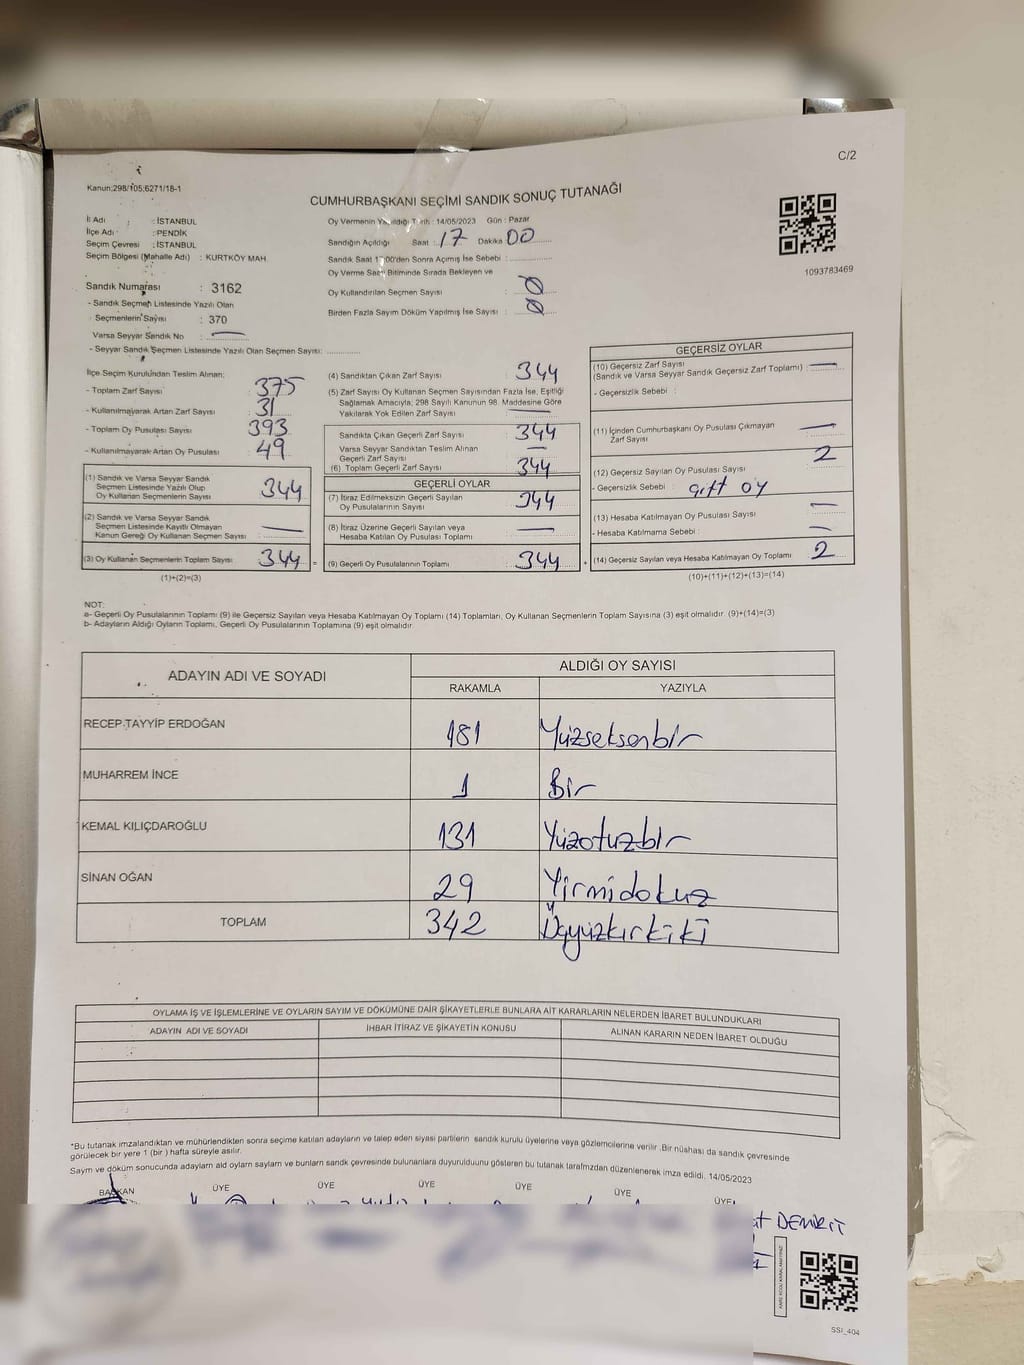 C/2
Kanun:298/105;6271/18-1
CUMHURBAŞKANI SEÇİMİ SANDIK SONUÇ TUTANAĞI
İl Adı : İSTANBUL
İlçe Adı : PENDİK
Seçim Çevresi : İSTANBUL
Seçim Bölgesi (Mahalle Adı) : KURTKÖY MAH.
Oy Vermenin Yapıldığı Tarih : 14/05/2023 Gün : Pazar
Sandığın Açıldığı Saat : 17 Dakika 00
Sandık Saat 17:00'den Sonra Açımış İse Sebebi :
Oy Verme Saati Bitiminde Sırada Bekleyen ve
Oy Kullandırılan Seçmen Sayısı : Ø
Birden Fazla Sayım Döküm Yapılmış İse Sayısı : Ø
1093783469
Sandık Numarası : 3162
- Sandık Seçmen Listesinde Yazılı Olan
Seçmenlerin Sayısı : 370
Varsa Seyyar Sandık No : —
- Seyyar Sandık Seçmen Listesinde Yazılı Olan Seçmen Sayısı:
İlçe Seçim Kurulundan Teslim Alınan:
- Toplam Zarf Sayısı : 375
- Kullanılmayarak Artan Zarf Sayısı : 31
- Toplam Oy Pusulası Sayısı : 393
- Kullanılmayarak Artan Oy Pusulası : 49
(1) Sandık ve Varsa Seyyar Sandık
Seçmen Listesinde Yazılı Olup
Oy Kullanan Seçmenlerin Sayısı : 344
(2) Sandık ve Varsa Seyyar Sandık
Seçmen Listesinde Kayıtlı Olmayan
Kanun Gereği Oy Kullanan Seçmen Sayısı : —
(3) Oy Kullanan Seçmenlerin Toplam Sayısı : 344 =
(1)+(2)=(3)
(4) Sandıktan Çıkan Zarf Sayısı : 344
(5) Zarf Sayısı Oy Kullanan Seçmen Sayısından Fazla İse, Eşitliği
Sağlamak Amacıyla, 298 Sayılı Kanunun 98. Maddesine Göre
Yakılarak Yok Edilen Zarf Sayısı : —
Sandıkta Çıkan Geçerli Zarf Sayısı : 344
Varsa Seyyar Sandıktan Teslim Alınan
Geçerli Zarf Sayısı : —
(6) Toplam Geçerli Zarf Sayısı : 344
GEÇERLİ OYLAR
(7) İtiraz Edilmeksizin Geçerli Sayılan
Oy Pusulalarının Sayısı : 344
(8) İtiraz Üzerine Geçerli Sayılan veya
Hesaba Katılan Oy Pusulası Toplamı : —
(9) Geçerli Oy Pusulalarının Toplamı : 344 +
GEÇERSİZ OYLAR
(10) Geçersiz Zarf Sayısı
(Sandık ve Varsa Seyyar Sandık Geçersiz Zarf Toplamı) : —
- Geçersizlik Sebebi :
(11) İçinden Cumhurbaşkanı Oy Pusulası Çıkmayan
Zarf Sayısı : —
(12) Geçersiz Sayılan Oy Pusulası Sayısı : 2
- Geçersizlik Sebebi : Çift oy
(13) Hesaba Katılmayan Oy Pusulası Sayısı : —
- Hesaba Katılmama Sebebi : —
(14) Geçersiz Sayılan veya Hesaba Katılmayan Oy Toplamı : 2
(10)+(11)+(12)+(13)=(14)
NOT:
a- Geçerli Oy Pusulalarının Toplamı (9) ile Geçersiz Sayılan veya Hesaba Katılmayan Oy Toplamı (14) Toplamları, Oy Kullanan Seçmenlerin Toplam Sayısına (3) eşit olmalıdır. (9)+(14)=(3)
b- Adayların Aldığı Oyların Toplamı, Geçerli Oy Pusulalarının Toplamına (9) eşit olmalıdır.
ADAYIN ADI VE SOYADI ALDIĞI OY SAYISI
RAKAMLA YAZIYLA
RECEP TAYYİP ERDOĞAN 181 Yüzseksenbir
MUHARREM İNCE 1 Bir
KEMAL KILIÇDAROĞLU 131 Yüzotuzbir
SİNAN OĞAN 29 Yirmidokuz
TOPLAM 342 Üçyüzkırkiki
OYLAMA İŞ VE İŞLEMLERİNE VE OYLARIN SAYIM VE DÖKÜMÜNE DAİR ŞİKAYETLERLE BUNLARA AİT KARARLARIN NELERDEN İBARET BULUNDUKLARI
ADAYIN ADI VE SOYADI İHBAR İTİRAZ VE ŞİKAYETİN KONUSU ALINAN KARARIN NEDEN İBARET OLDUĞU
*Bu tutanak imzalandıktan ve mühürlendikten sonra seçime katılan adayların ve talep eden siyasi partilerin sandık kurulu üyelerine veya gözlemcilerine verilir. Bir nüshası da sandık çevresinde
görülecek bir yere 1 (bir) hafta süreyle asılır.
Sayım ve döküm sonucunda adayların ald oyların sayları ve bunların sandk çevresinde bulunanlara duyurulduunu gösteren bu tutanak tarafmzdan düzenlenerek imza edildi. 14/05/2023
BAŞKAN ÜYE ÜYE ÜYE ÜYE ÜYE ÜYE
DEMİRİT
SSI_404